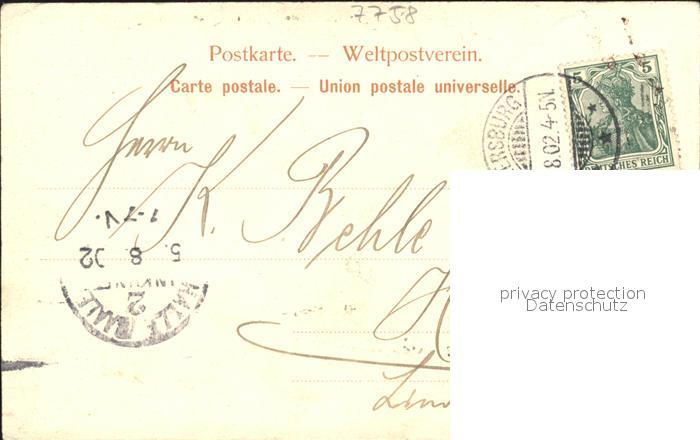 7758
Postkarte. — Weltpostverein.
Carte postale. — Union postale universelle.
5 5
DEUTSCHES REICH
ERSBURG
8.02.4-5N.
Herrn
K. Behle
1-7V.
5. 8. 02
2
HALLE (SAALE
privacy protection
Datenschutz